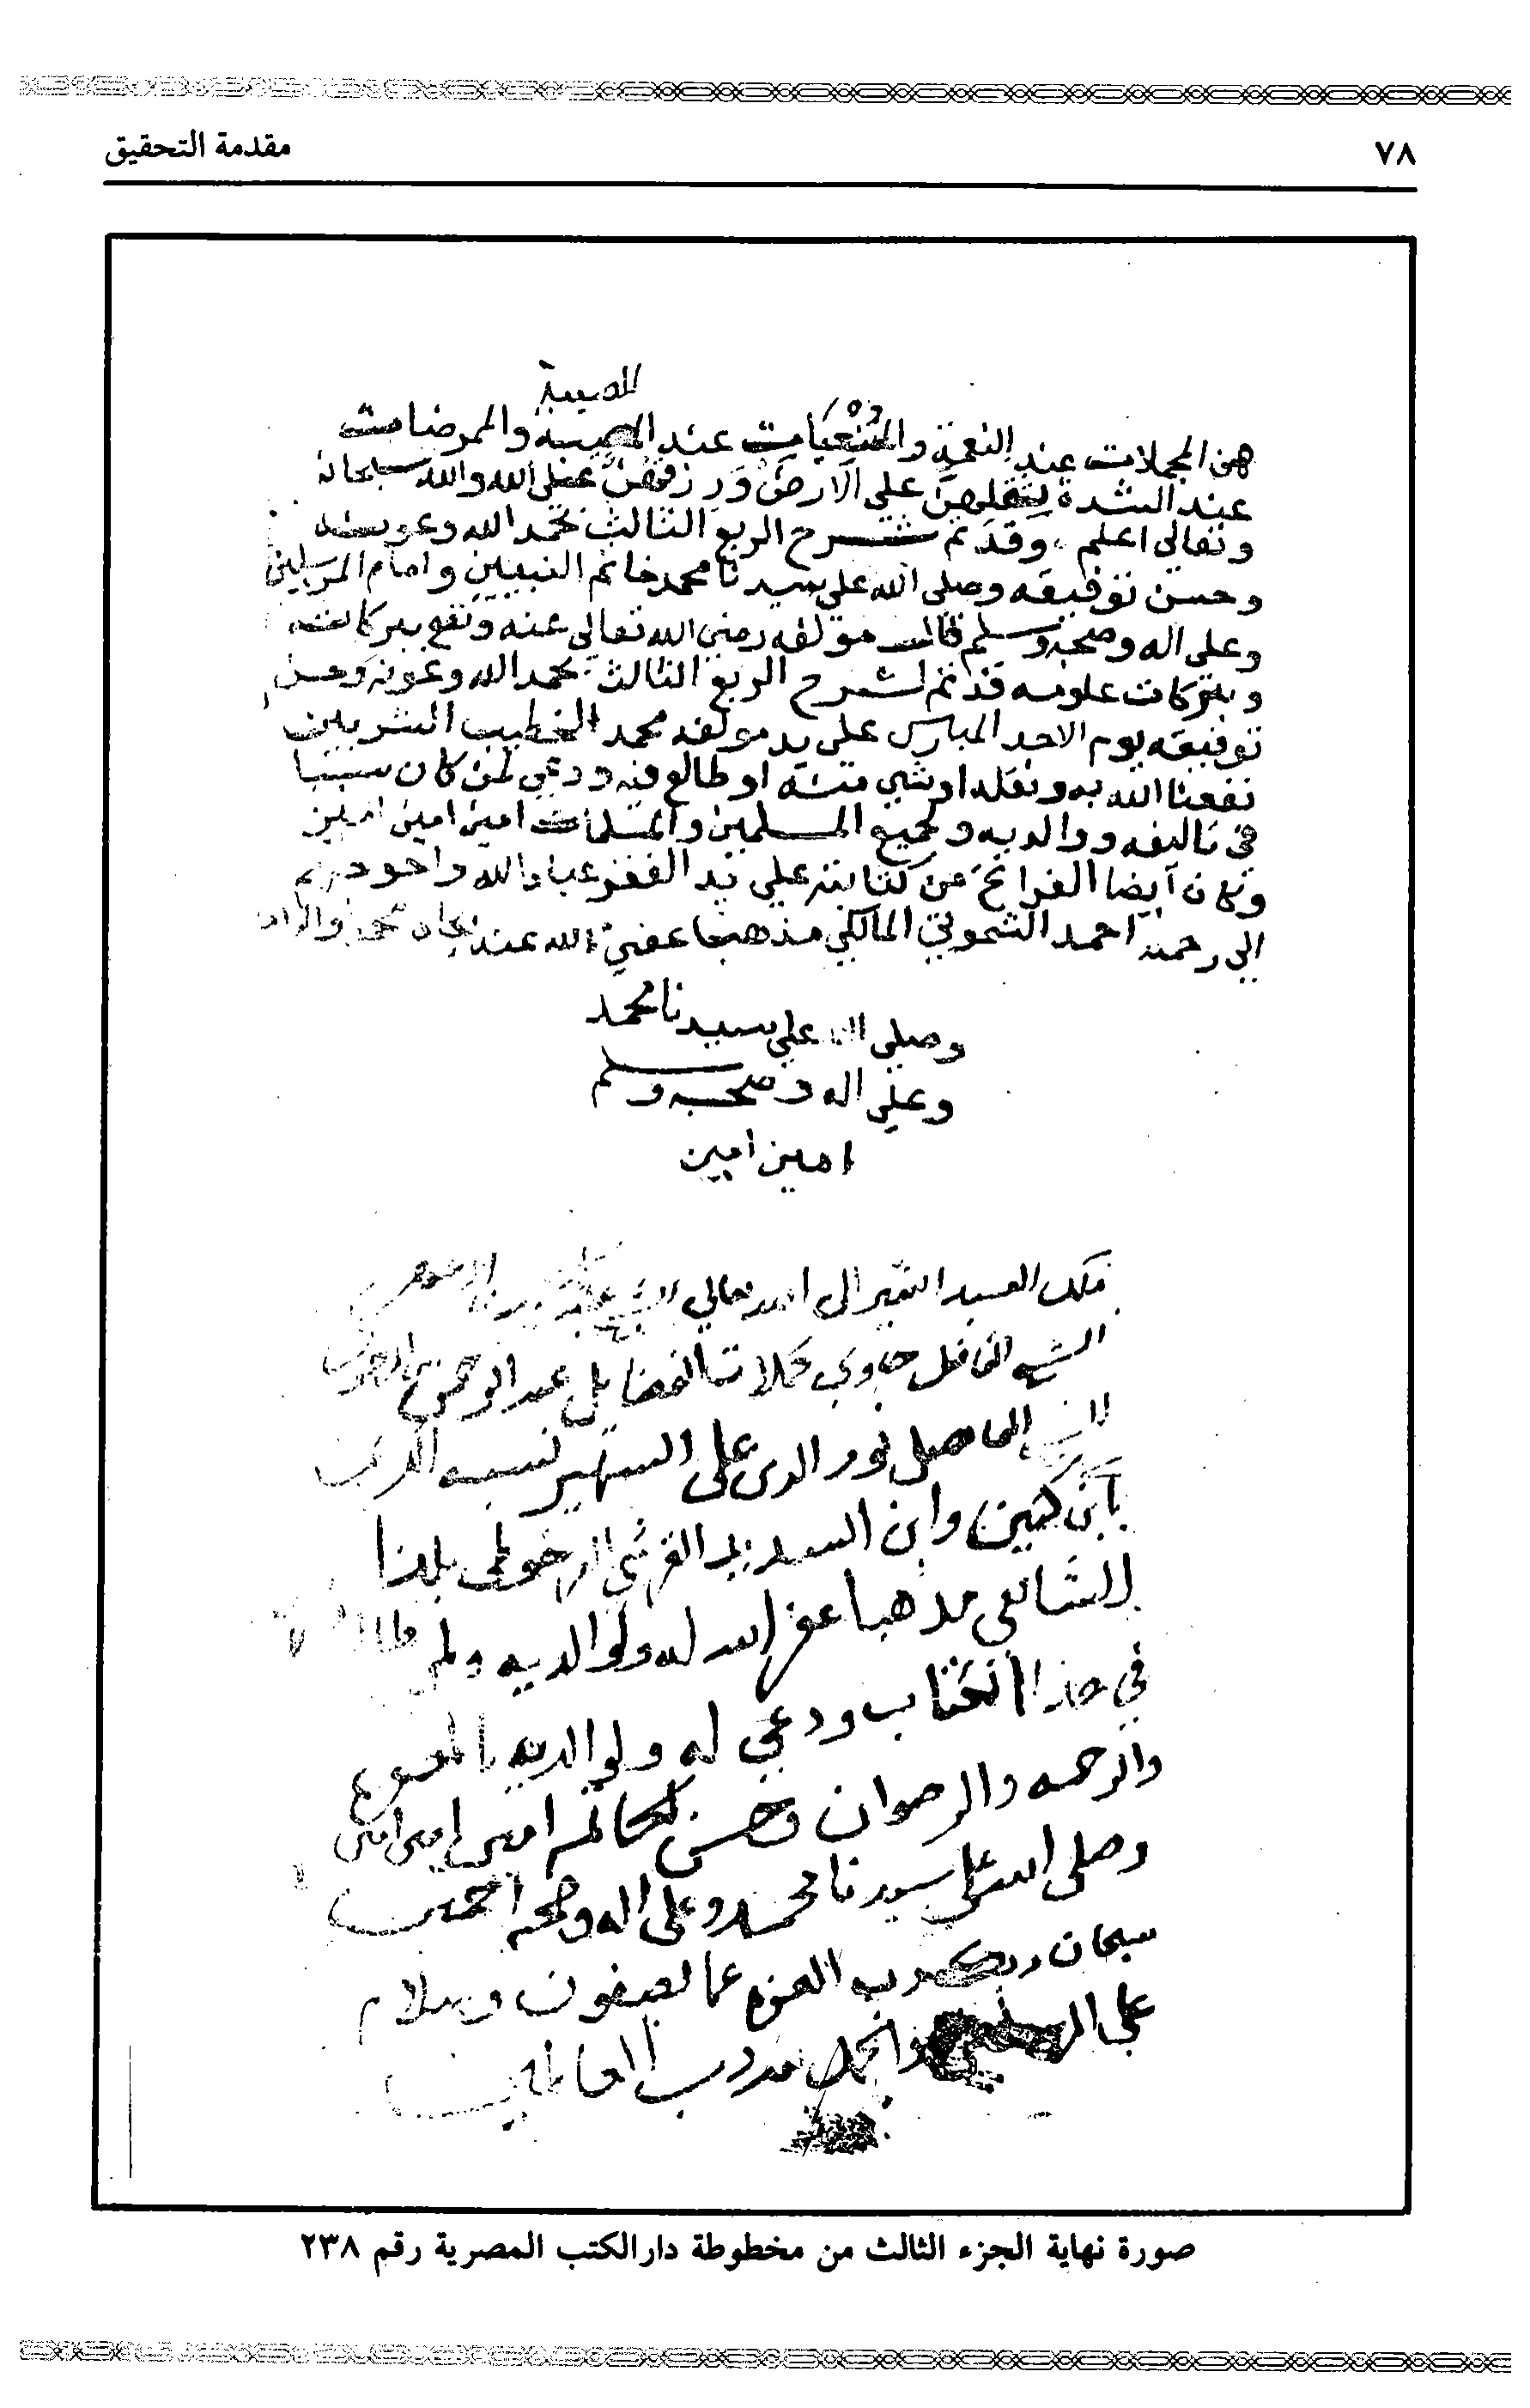 ٧٨
مقدمة التحقيق
للمصيبة
هن المجملات عند النعمة والمتعبات عند المصيبة والممرضات
عند الشدة ثقلهن على الارض ورزقهن على الله والله سبحانه
وتعالى اعلم وقد تم شرح الربع الثالث بحمد الله وعونه
وحسن توفيقه وصلى الله على سيدنا محمد خاتم النبيين وامام المرسلين
وعلى اله وصحبه وسلم قال مولفه رضي الله تعالى عنه ونفع ببركاته
وببركات علومه قد تم شرح الربع الثالث بحمد الله وعونه وحسن
توفيقه يوم الاحد المبارك على يد مولفه محمد الخطيب الشربيني
نفعنا الله به ونقله او شي منه او طالع فيه ودعى لمن كان سببا
في تاليفه ووالديه ولجميع المسلمين والمسلمات امين امين امين
وكان ايضا الفراغ من كتابته على يد افقر عباد الله واحوجهم
الى رحمته احمد الشموني المالكي مذهبا عفى الله عنه بجاه محمد واله
وصلى الله على سيدنا محمد
وعلى اله وصحبه وسلم
امين امين
ملك العبد الفقير الى الله تعالى
الشيخ الفاضل حاوي كمالات الفضايل عبد الرحمن
الفاضل نور الدين على الشهير نسبه
وابن السديد القرشي بلدا
الشافعي مذهبا غفر الله له ولوالديه ولمن
في هذا الكتاب ودعى له ولوالديه بالمغفرة
والرحمه والرضوان وحسن الخاتمه امين امين امين
وصلى الله على سيدنا محمد وعلى اله وصحبه اجمعين
سبحان ربك رب العزه عما يصفون وسلام
على المرسلين والحمد لله رب العالمين
صورة نهاية الجزء الثالث من مخطوطة دار الكتب المصرية رقم ٢٣٨